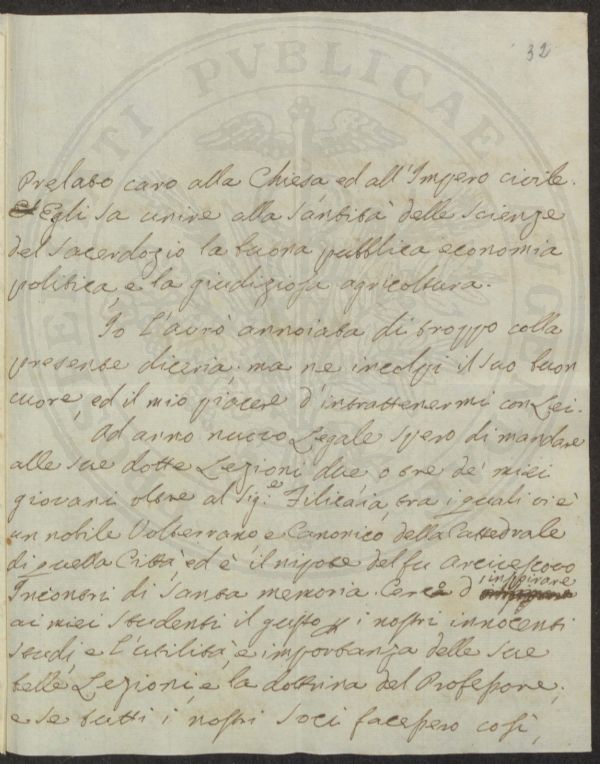 32
Prelato caro alla Chiesa ed all'Impero civile.
Egli sa unire alla santità delle scienze
del sacerdozio la buona pubblica economia
politica, e la giudiziosa agricoltura.
Io l'avrò annoiata di troppo colla
presente diceria, ma ne incolpi il suo buon
cuore, ed il mio piacere d'intrattenermi con Lei.
Ad anno nuovo Legale spero di mandare
alle sue dotte Lezioni due o tre de' miei
giovani oltre al Sig.e Filicaia, tra i quali vi è
un nobile Volterrano e Canonico della Cattedrale
di quella Città, ed è il nipote del fu Arcivescovo
Incontri di santa memoria. Cerco d'inspirare
ai miei studenti il gusto i nostri innocenti
studj, e l'utilità, e importanza delle sue
belle Lezioni, e la dottrina del Professore;
e se tutti i nostri Soci facessero così,
PUBLICAE